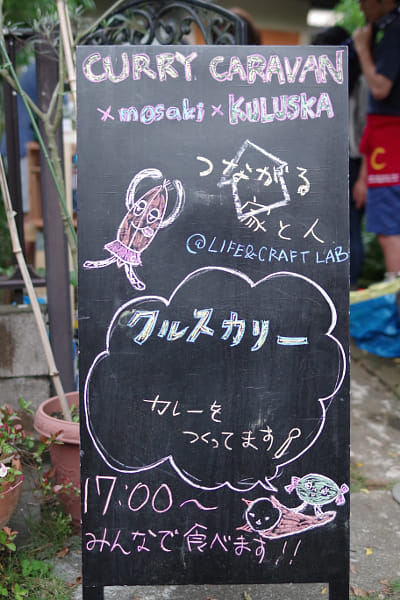 CURRY CARAVAN
×mosaki×KULUSKA
つながる
家と人
@LIFE&CRAFT LAB
クルスカリー
カレーを
つくってます
17:00〜
みんなで食べます!!
C